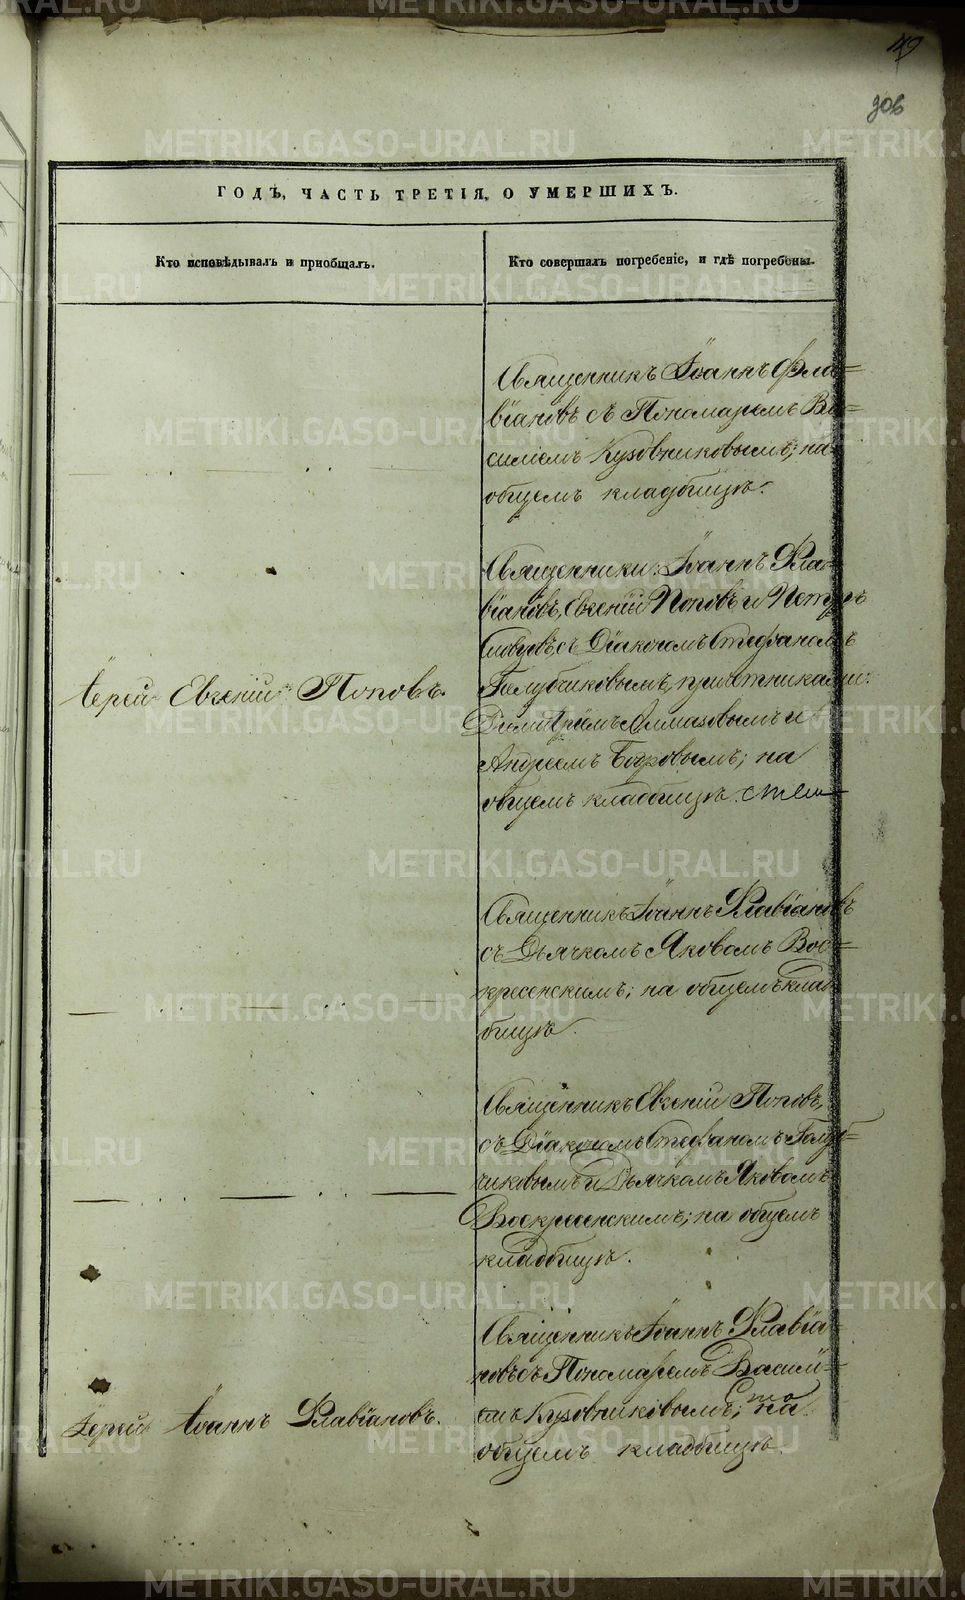 149
306
ГОДЪ, ЧАСТЬ ТРЕТІЯ, О УМЕРШИХЪ.
Кто исповѣдывалъ и пріобщалъ.
Кто совершалъ погребеніе, и гдѣ погребены.
Священникъ Іоаннъ Фла=
віановъ съ Пономаремъ Ва=
силіемъ Кузовниковымъ; на
общемъ кладбищѣ.
Іерей Евгеній Поповъ.
Священники: Іоаннъ Фла=
віановъ, Евгеній Поповъ и Петръ
съ Діакономъ Стефаномъ
Голубчиковымъ, причетниками:
Димитріемъ Алмазовымъ и
Андреемъ Бобровымъ; на
общемъ кладбищѣ.
Священникъ Іоаннъ Флавіановъ
съ Дьячкомъ Яковомъ Вос=
кресенскимъ; на общемъ клад
бищѣ.
Священникъ Евгеній Поповъ,
съ Діакономъ Стефаномъ Голуб=
чиковымъ и Дьячкомъ Яковомъ
Воскресенскимъ; на общемъ
кладбищѣ.
Іерей Іоаннъ Флавіановъ.
Священникъ Іоаннъ Флавіа=
новъ съ Пономаремъ Василі=
емъ Кузовниковымъ; на
общемъ кладбищѣ.
METRIKI.GASO-URAL.RU